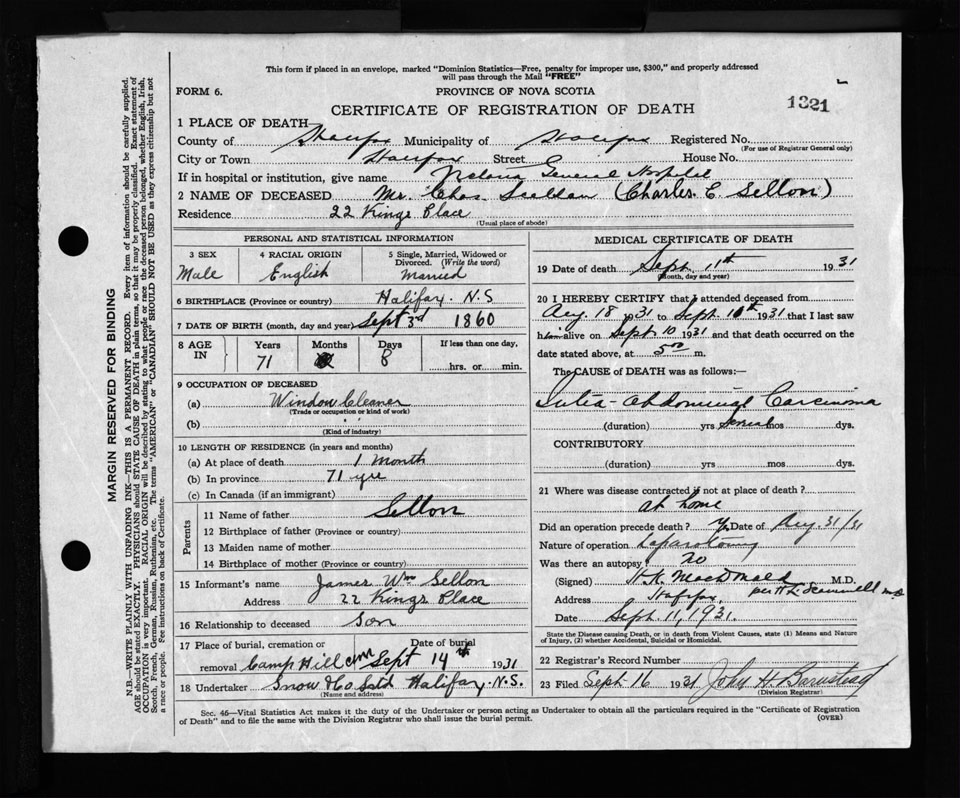 This form if placed in an envelope, marked "Dominion Statistics—Free, penalty for improper use, $300," and properly addressed
will pass through the Mail "FREE"
FORM 6.
PROVINCE OF NOVA SCOTIA
1321
CERTIFICATE OF REGISTRATION OF DEATH
1 PLACE OF DEATH
County of Halifax Municipality of Halifax Registered No.
(For use of Registrar General only)
City or Town Halifax Street House No.
If in hospital or institution, give name Victoria General Hospital
2 NAME OF DECEASED Mr. Chas (Charles E. Sellon)
Residence 22 Kings Place
(Usual place of abode)
PERSONAL AND STATISTICAL INFORMATION
3 SEX 4 RACIAL ORIGIN 5 Single, Married, Widowed or
Divorced. (Write the word)
Male English Married
6 BIRTHPLACE (Province or country) Halifax. N.S
7 DATE OF BIRTH (month, day and year) Sept 3rd 1860
8 AGE IN Years Months Days If less than one day,
71 8 hrs. or min.
9 OCCUPATION OF DECEASED
(a) Window Cleaner
(Trade or occupation or kind of work)
(b)
(Kind of industry)
10 LENGTH OF RESIDENCE (in years and months)
(a) At place of death 1 month
(b) In province 71 yrs
(c) In Canada (if an immigrant)
Parents
11 Name of father Sellon
12 Birthplace of father (Province or country)
13 Maiden name of mother
14 Birthplace of mother (Province or country)
15 Informant's name James Wm Sellon
Address 22 Kings Place
16 Relationship to deceased Son
17 Place of burial, cremation or Date of burial
removal Camp Hill Cem Sept 14th 1931
18 Undertaker Snow & Co Ltd Halifax. N.S.
(Name and address)
MEDICAL CERTIFICATE OF DEATH
19 Date of death Sept. 11th 1931
(Month, day and year)
20 I HEREBY CERTIFY that I attended deceased from
Aug. 18 1931 to Sept. 10th 1931 that I last saw
him alive on Sept 10 1931 and that death occurred on the
date stated above, at 5:00 m.
The CAUSE of DEATH was as follows:—
Intra-abdominal Carcinoma
(duration) yrs several mos dys.
CONTRIBUTORY
(duration) yrs mos dys.
21 Where was disease contracted if not at place of death?
at home
Did an operation precede death? Date of Aug. 31/31
Nature of operation Laparotomy
Was there an autopsy? no
(Signed) H.K. MacDonald M.D.
Address Halifax
Date Sept. 11, 1931.
State the Disease causing Death, or in death from Violent Causes, state (1) Means and Nature
of Injury, (2) whether Accidental, Suicidal or Homicidal.
22 Registrar's Record Number
23 Filed Sept 16 1931 John H. Barnstead
(Division Registrar)
Sec. 46—Vital Statistics Act makes it the duty of the Undertaker or person acting as Undertaker to obtain all the particulars required in the "Certificate of Registration
of Death" and to file the same with the Division Registrar who shall issue the burial permit.
(OVER)
MARGIN RESERVED FOR BINDING
N.B.—WRITE PLAINLY WITH UNFADING INK—THIS IS A PERMANENT RECORD. Every item of information should be carefully supplied.
AGE should be stated EXACTLY. PHYSICIANS should STATE CAUSE OF DEATH in plain terms, so that it may be properly classified. Exact statement of
OCCUPATION is very important. RACIAL ORIGIN will be described by stating to what people or race the deceased person belonged, whether English, Irish,
Scotch, French, German, Russian, Ruthenian, etc. The terms "AMERICAN" or "CANADIAN" SHOULD NOT BE USED as they express citizenship but not
a race or people. See instructions on back of Certificate.